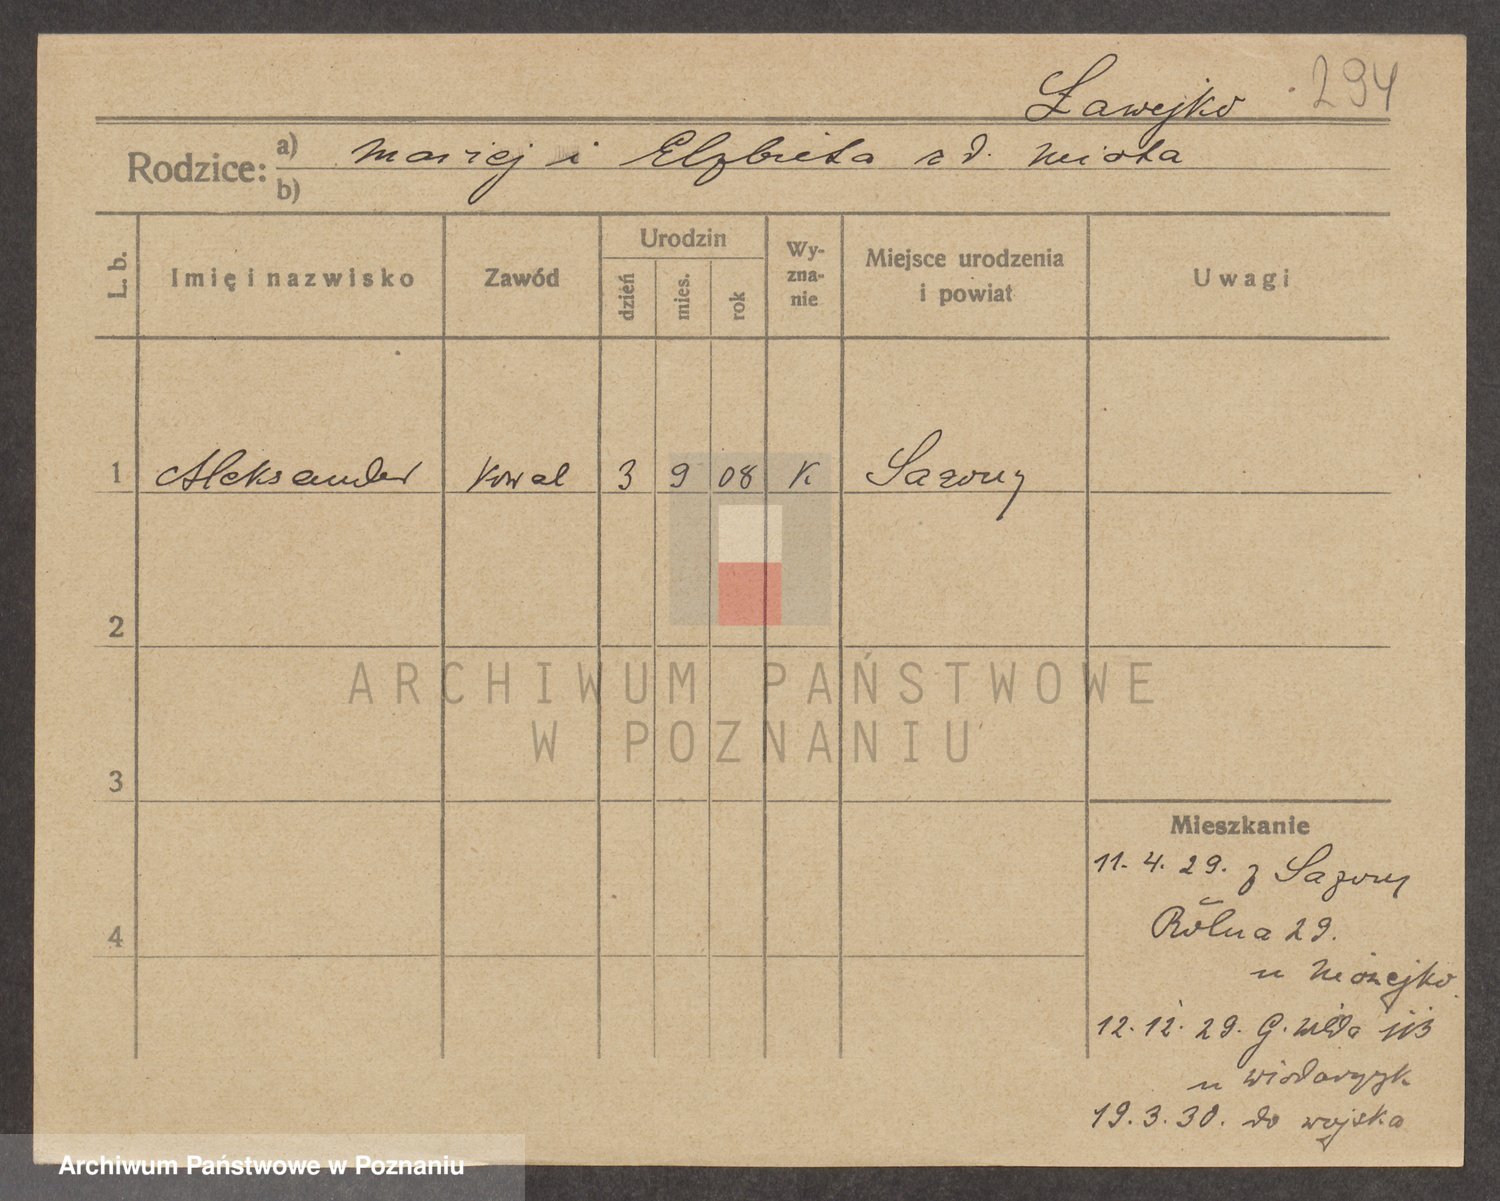 Ławejko
294
Rodzice: a) Maciej i Elzbieta z d. Miota
b)
L. b.
Imię i nazwisko
Zawód
Urodzin
dzień
mies.
rok
Wy-
zna-
nie
Miejsce urodzenia
i powiat
Uwagi
1 Aleksander Kowal 3 9 08 K Sazony
2
3
4
Mieszkanie
11. 4. 29. z Sazony
Rólna 29.
u
12. 12. 29. G. Wilda 113
u
19. 3. 30. do wojska
ARCHIWUM PAŃSTWOWE
W POZNANIU
Archiwum Państwowe w Poznaniu